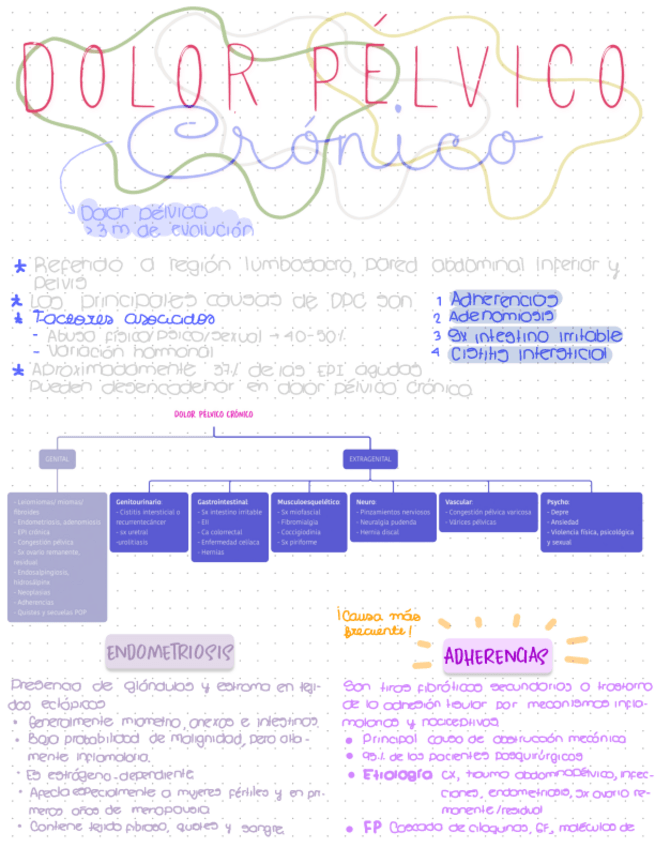 DOLOR PÉLVICO
Crónico
Dolor pélvico
>3 m de evolución
* Referido a región lumbosacra, pared abdominal inferior y
pelvis
* Las principales causas de DPC son
1 Adherencias
2 Adenomiosis
3 Sx intestino irritable
4 Cistitis intersticial
* Factores asociados
- Abuso físico/psico/sexual → 40-50%
- Variación hormonal
* Aproximadamente 37% de las EPI agudas
pueden desencadenar en dolor pélvico crónico
DOLOR PÉLVICO CRÓNICO
GENITAL
EXTRAGENITAL
- Leiomiomas/ miomas/
fibroides
- Endometriosis, adenomiosis
- EPI crónica
- Congestión pélvica
- Sx ovario remanente,
residual
- Endosalpingiosis,
hidrosálpinx
- Neoplasias
- Adherencias
- Quistes y secuelas POP
Genitourinario
- Cistitis intersticial o
recurrente
- sx uretral
-urolitiasis
Gastrointestinal:
- Sx intestino irritable
- EII
- Ca colonrectal
- Enfermedad celíaca
- Hernias
Musculoesquelético
- Sx miofascial
- Fibromialgia
- Coccigodinia
- Sx piriforme
Neuro:
- Pinzamientos nerviosos
- Neuralgia pudenda
- Hernia discal
Vascular:
- Congestión pélvica varicosa
- Várices pélvicas.
Psycho:
- Depre
- Ansiedad
- Violencia física, psicológica
y sexual
ENDOMETRIOSIS
Presencia de glándulas y estroma en teji-
dos ectópicos
• Generalmente miometrio, anexos e intestinos.
• Baja probabilidad de malignidad, pero alta-
mente inflamatoria.
• Es estrógeno-dependiente
• Afecta especialmente a mujeres fértiles y en pri-
meros años de menopausia
• Contiene tejido fibroso, quistes y sangre.
¡Causa más
frecuente!
ADHERENCIAS
Son tiras fibróticas secundarias a trastorno
de la adhesión tisular por mecanismos infla-
matorios y nociceptivos
• Principal causa de obstrucción mecánica
• 95% de los pacientes posquirúrgicos
• Etiología Cx, trauma abdominopélvico, infec-
ciones, endometriosis, Sx ovario re-
manente/residual
• FP Cascada de citoquinas, GF, moléculas de